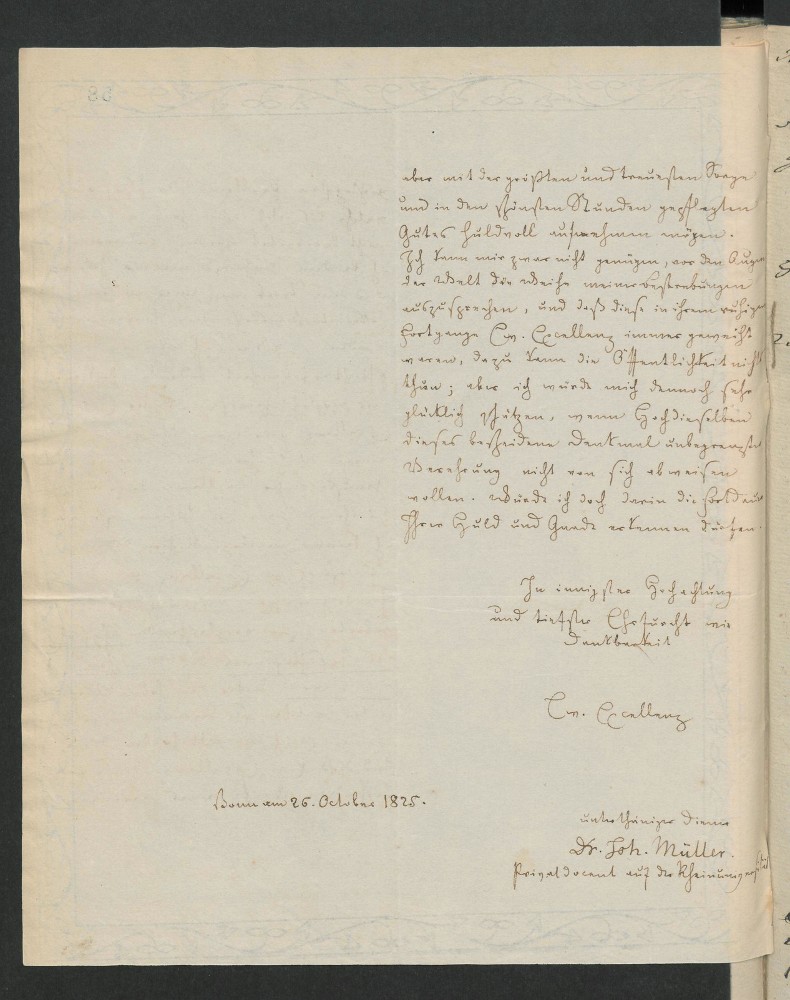 aber mit der größten und treuesten Sorge
und in den schönsten Stunden gepflegten
Gutes huldvoll aufnehmen mögen.
Ich kann mir zwar nicht genügen, vor den Augen
der Welt die Weihe meiner Bestrebungen
auszusprechen, und daß diese in ihrem ruhigen
Fortgange Ew. Excellenz immer geweiht
waren, dazu kann die Öffentlichkeit nichts
thun; aber ich würde mich dennoch sehr
glücklich schätzen, wenn Hochdieselben
dieses bescheidene Denkmal unbegrenzter
Verehrung nicht von sich abweisen
wollen. Würde ich doch darin die Fortdauer
Ihrer Huld und Gnade erkennen dürfen.
In innigster Hochachtung
und tiefster Ehrfurcht wie
Dankbarkeit
Ew. Excellenz
Bonn am 26. October 1825.
unterthäniger Diener
Dr. Joh. Müller.
Privatdocent auf der Rheinuniversität